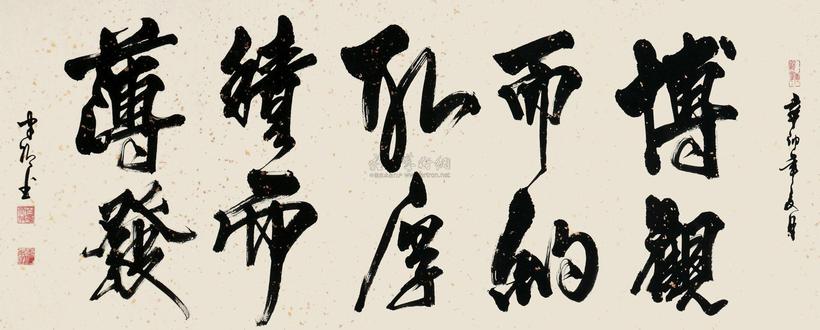 辛卯年夏月
博觀
而約
取厚
積而
薄發